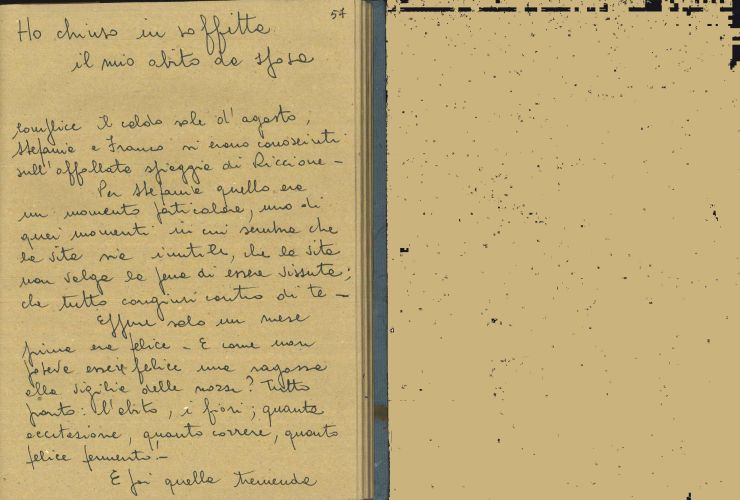 57
Ho chiuso in soffitta
il mio abito da sposa
complice il caldo sole d'agosto,
Stefania e Franco si erano conosciuti
sull'affollata spiaggia di Riccione -
Per Stefania quello era
un momento particolare, uno di
quei momenti in cui sembra che
la vita sia inutile, che la vita
non valga la pena di essere vissuta;
che tutto congiuri contro di te -
Eppure solo un mese
prima era felice - E come non
poteva essere felice una ragazza
alla vigilia delle nozze? Tutto
pronto: l'abito, i fiori; quanta
eccitazione, quanto correre, quanto
felice fermento! -
E poi quella tremenda